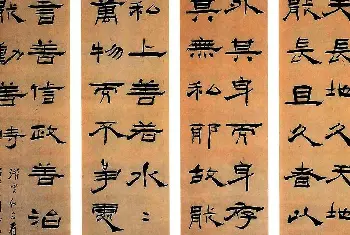 天長地久天地
能長且久者以
外其身而身存
其無私耶故能
私上善若水〻
萬物而不爭
言善信政善治
能動善時